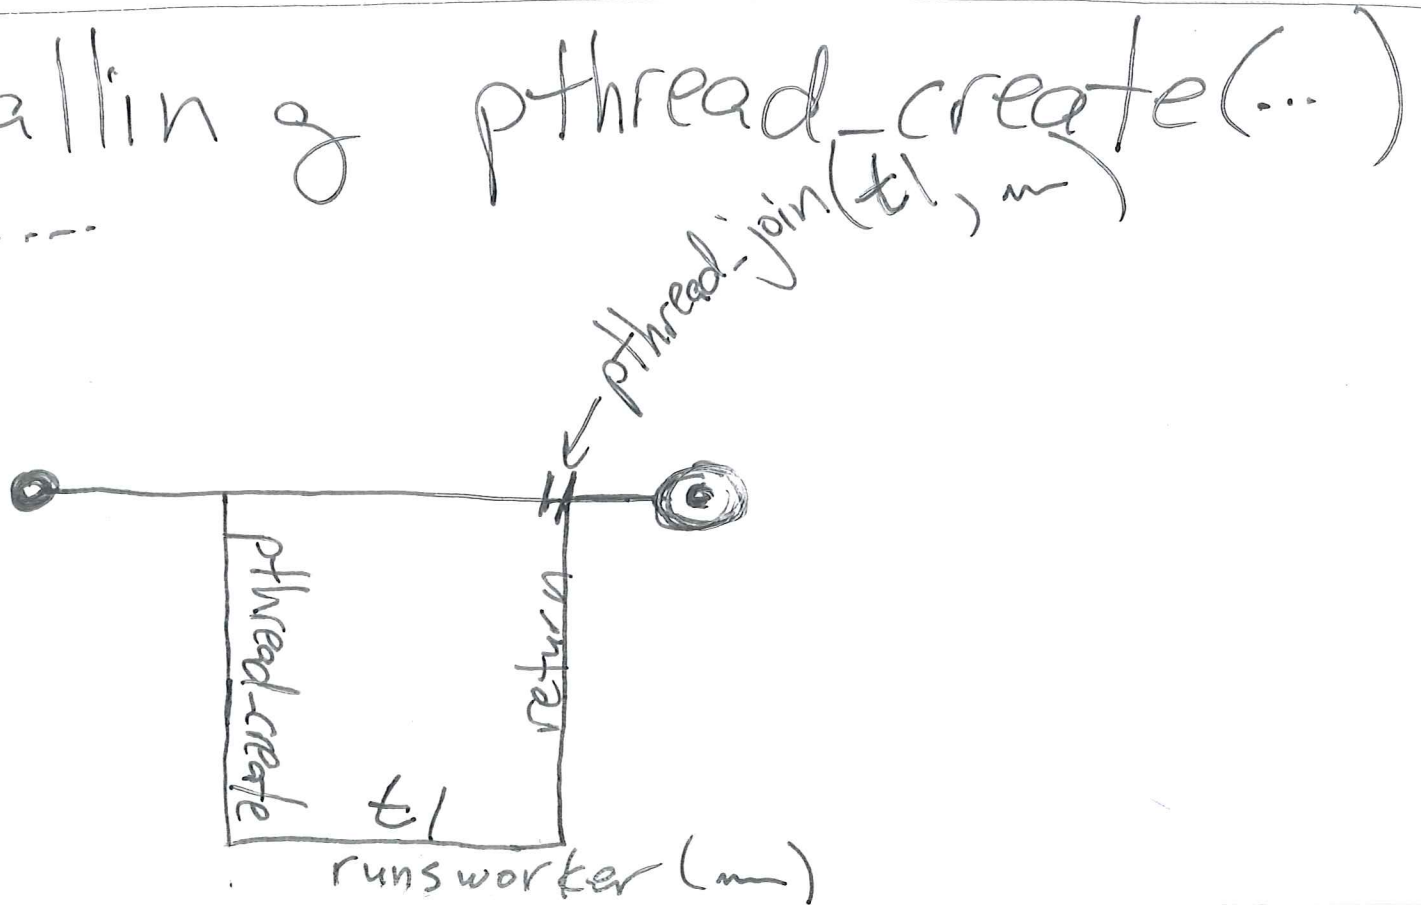 alling pthread_create(...)
....
pthread_join(t1, ~)
pthread_create
return
t1
runs worker (~)